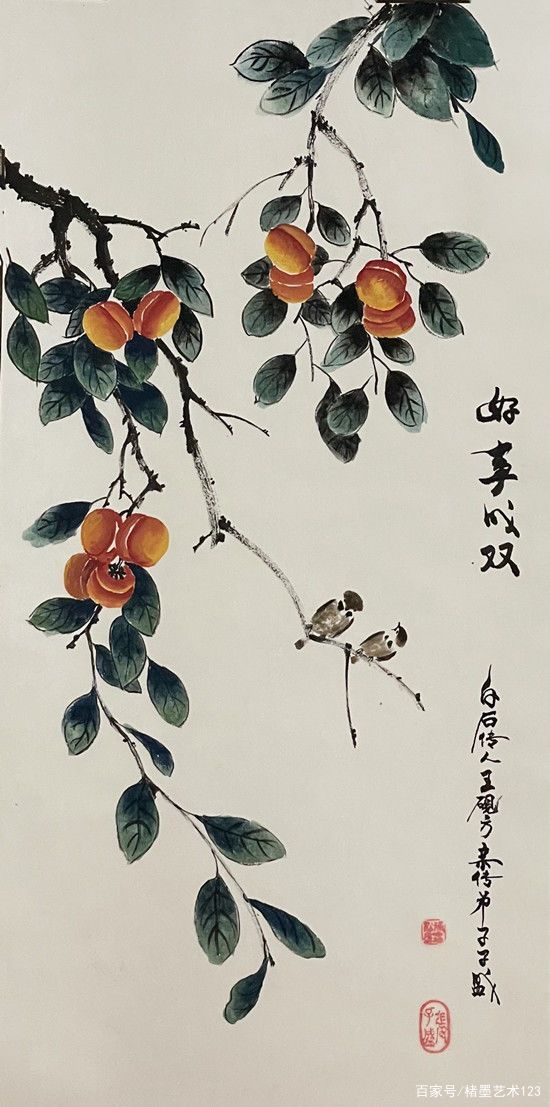 好事成双
白石传人王砚方亲传弟子子盛
百家号/楮墨艺术123